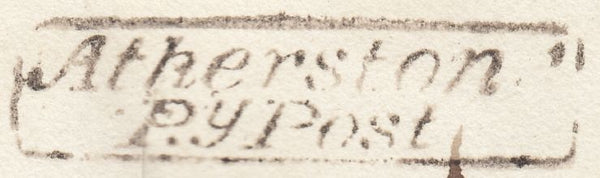 Atherston"
P.y Post